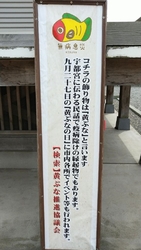 無病息災
コチラの飾り物は【黄ぶな】と言います
宇都宮に伝わる民話で疫病除けの縁起物でもあります。
九月二十七日の『黄ぶなの日』に市内各所でイベント等も行われます。
【検索】黄ぶな推進協議会